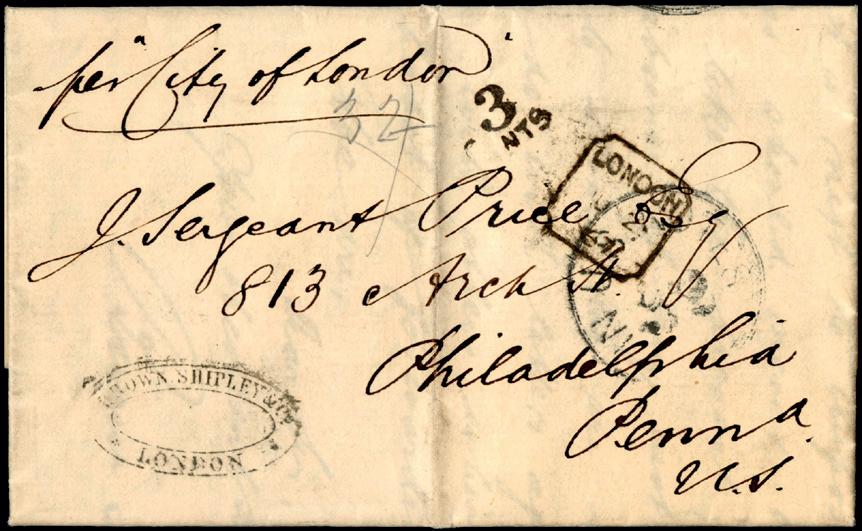 per "City of London"
3
NTS
LONDON
J. Sergeant Price Esq
813 Arch St.
Philadelphia
Penna.
U.S.
OWN SHIPLEY & Co
LONDON